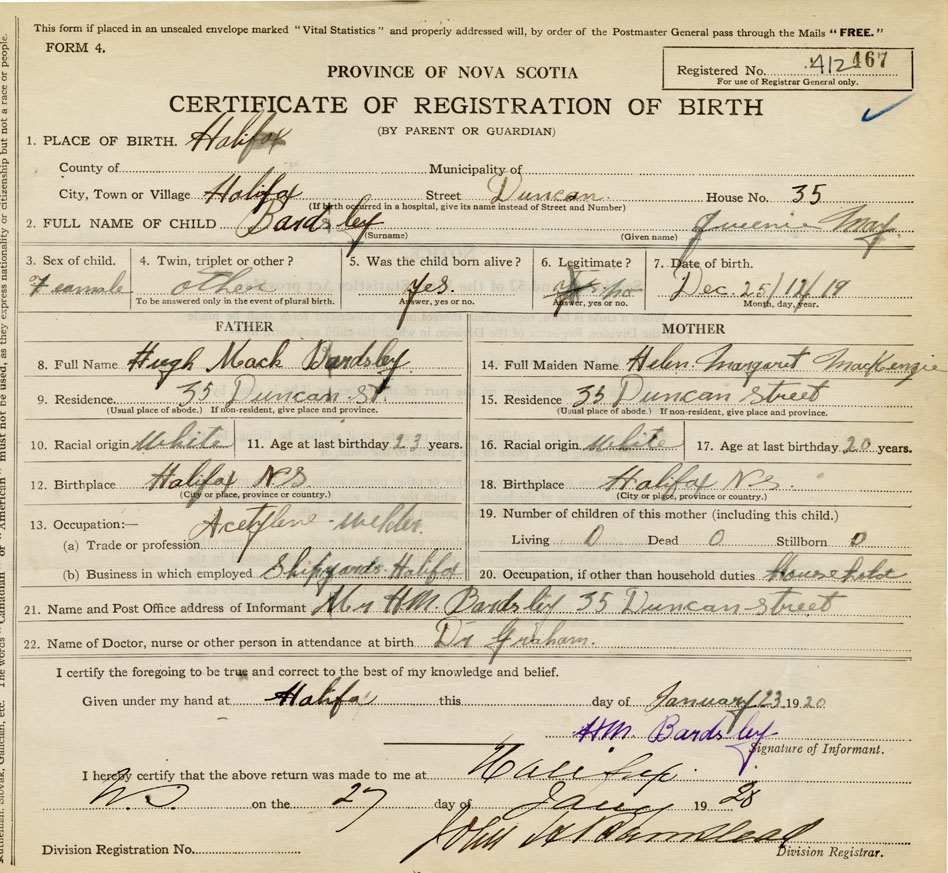 This form if placed in an unsealed envelope marked "Vital Statistics" and properly addressed will, by order of the Postmaster General pass through the Mails "FREE."
FORM 4.
Registered No. 412 467
For use of Registrar General only.
PROVINCE OF NOVA SCOTIA
CERTIFICATE OF REGISTRATION OF BIRTH
(BY PARENT OR GUARDIAN)
1. PLACE OF BIRTH. Halifax
County of Municipality of
City, Town or Village Halifax Street Duncan. House No. 35
(If birth occurred in a hospital, give its name instead of Street and Number)
2. FULL NAME OF CHILD Bardsley Queenie May.
(Surname) (Given name)
3. Sex of child. 4. Twin, triplet or other? 5. Was the child born alive? 6. Legitimate? 7. Date of birth.
Feamale other yes. yes. no Dec. 25/12/19
To be answered only in the event of plural birth. Answer, yes or no. Answer, yes or no. Month, day, year.
FATHER
8. Full Name Hugh Mack Bardsley
9. Residence 35 Duncan St.
(Usual place of abode.) If non-resident, give place and province.
10. Racial origin White 11. Age at last birthday 23 years.
12. Birthplace Halifax N.S.
(City or place, province or country.)
13. Occupation:— Acetylene - welder
(a) Trade or profession
(b) Business in which employed Shipyards Halifax
MOTHER
14. Full Maiden Name Helen Margaret MacKenzie
15. Residence 35 Duncan Street
(Usual place of abode.) If non-resident, give place and province.
16. Racial origin White 17. Age at last birthday 20 years.
18. Birthplace Halifax N.S.
(City or place, province or country.)
19. Number of children of this mother (including this child.)
Living 0 Dead 0 Stillborn 0
20. Occupation, if other than household duties Household
21. Name and Post Office address of Informant Mr H.M. Bardsley 35 Duncan Street
22. Name of Doctor, nurse or other person in attendance at birth Dr Graham.
I certify the foregoing to be true and correct to the best of my knowledge and belief.
Given under my hand at Halifa this day of January 23 1920
HM. Bardsley
Signature of Informant.
I hereby certify that the above return was made to me at Halifax
N.S. on the 27 day of Jany 19 20
John
Division Registration No. Division Registrar.